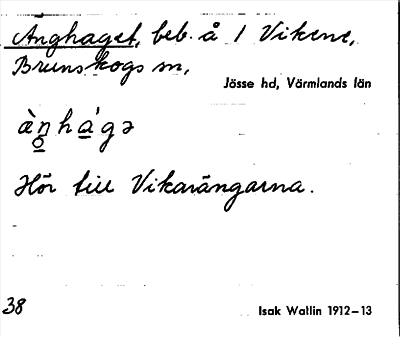 Änghaget, beb. å 1 Vikene,
Brunskogs sn,
Jösse hd, Värmlands län
Hör till Vikarängarna.
38
Isak Wallin 1912–13